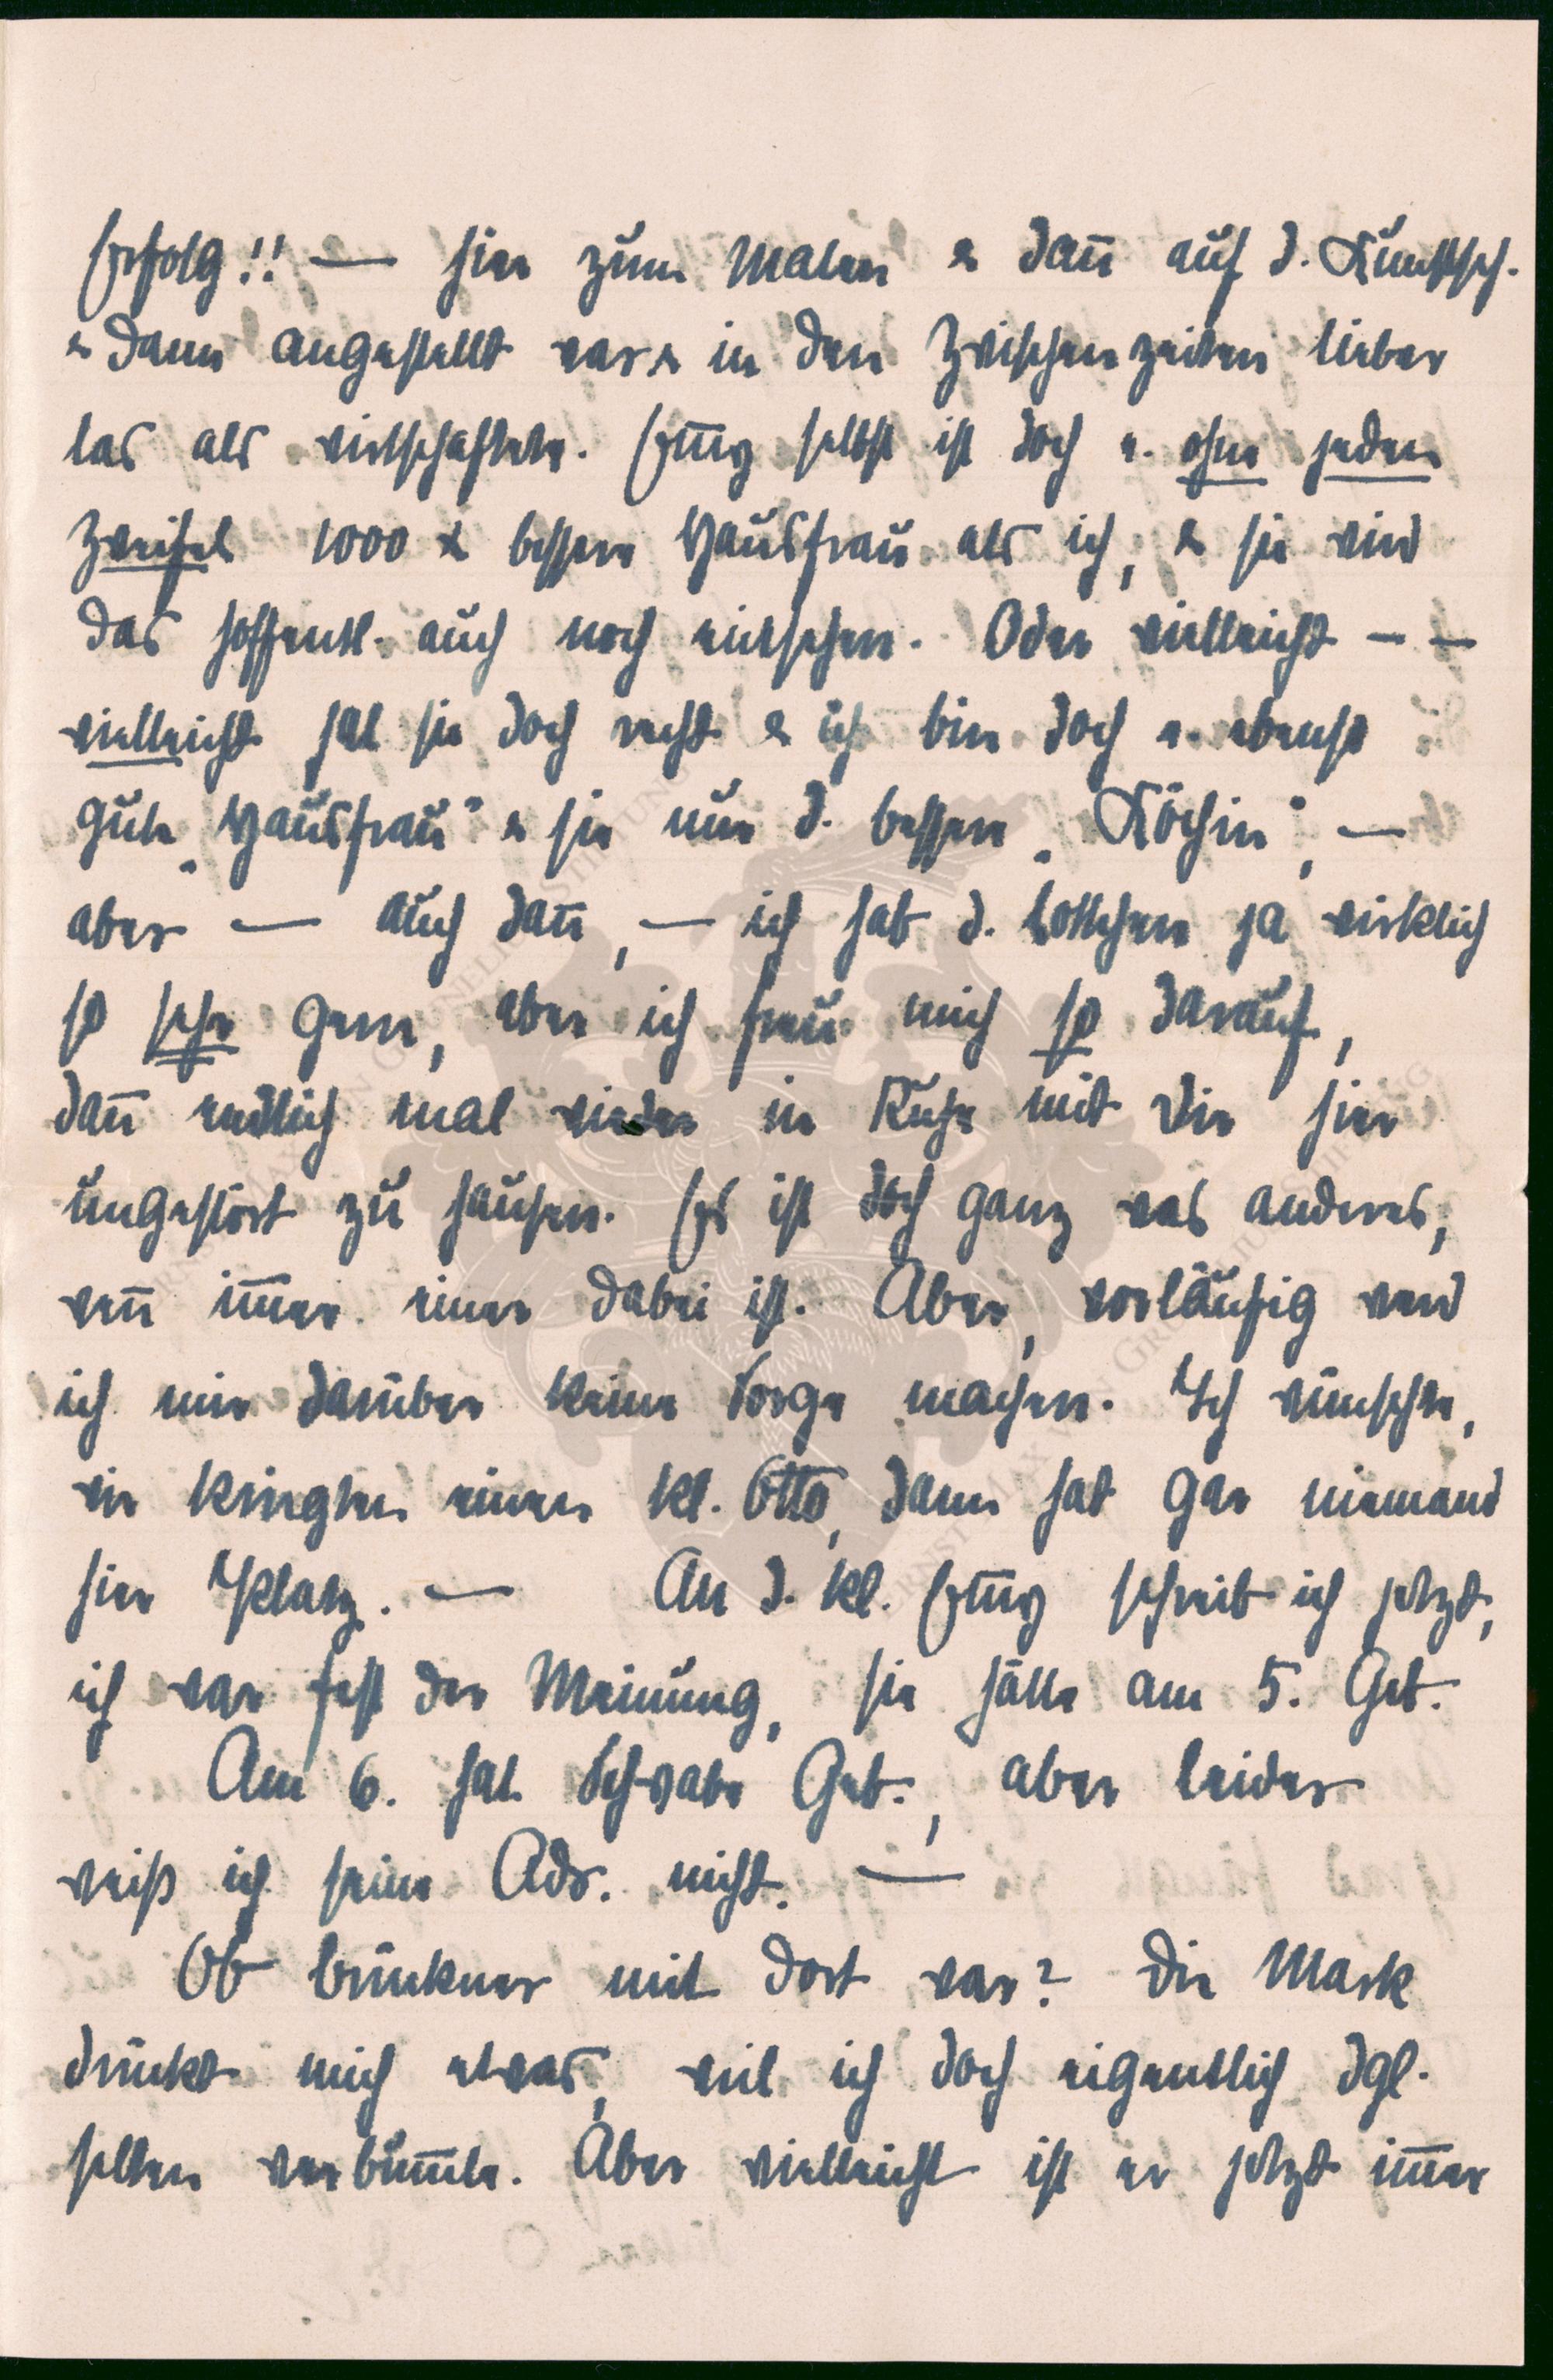 Erfolg!! — hier zum Malen & dan̄ auf d. Kunstsch.
& dann angestellt war & in den Zwischenzeiten lieber
las als wirtschaftete. Em̄y selbst ist doch e. ohne jeden
Zweifel 1000 x bessere Hausfrau als ich, & sie wird
das hoffentl. auch noch einsehen. Oder vielleicht — —
vielleicht hat sie doch recht & ich bin doch e. ebenso
gute „Hausfrau" & sie nur d. bessere „Köchin", —
aber — auch dan̄, — ich hab d. Lottchen ja wirklich
so sehr gern, aber ich freu mich so darauf,
dan̄ endlich mal wieder in Ruhe mit Dir hier
ungestört zu hausen. Es ist doch ganz was anderes,
wen̄ im̄er einer dabei ist. Aber, vorläufig werd
ich mir darüber keine Sorge machen. Ich wünschte,
wir kriegten einen kl. Otto, dann hat gar niemand
hier Platz. — An d. kl. Em̄y schreib ich jetzt,
ich war fest der Meinung, sie hätte am 5. Geb.
Am 6. hat Schwabe Geb., aber leider
weiß ich seine Adr. nicht. —
Ob Brückner mit dort war? Die Mark
drückt mich etwas, weil ich doch eigentlich dgl.
selten verbum̄le. Aber vielleicht ist er jetzt im̄er